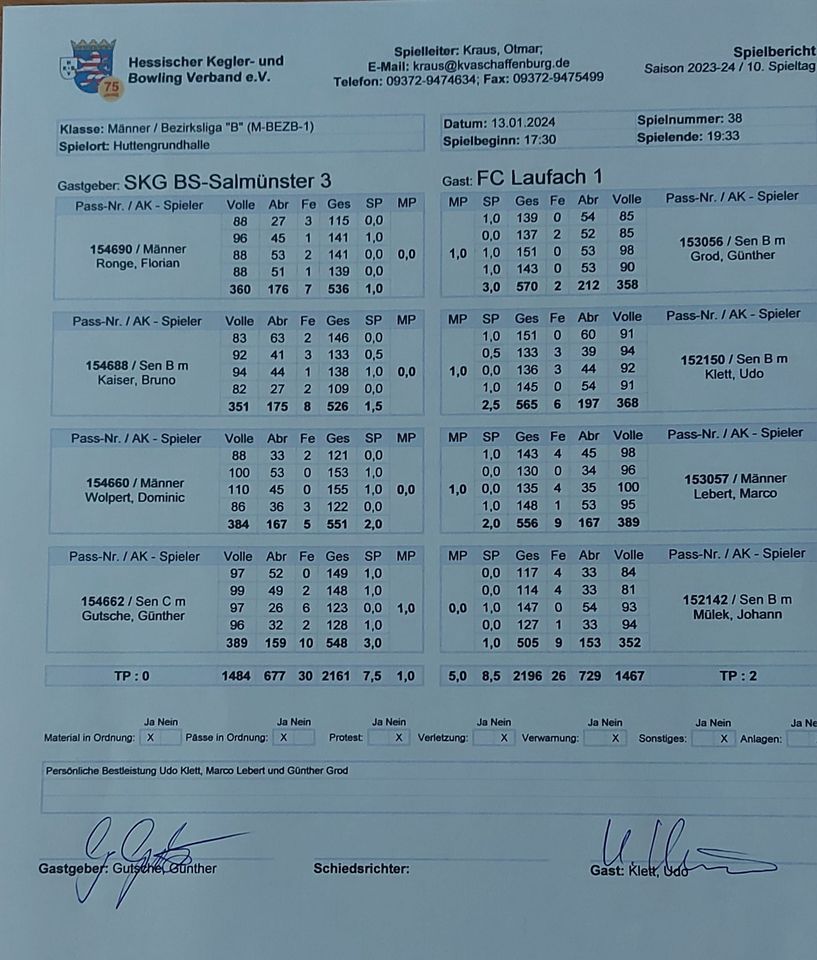 Hessischer Kegler- und
Bowling Verband e.V.
75
Spielleiter: Kraus, Otmar;
E-Mail: kraus@kvaschaffenburg.de
Telefon: 09372-9474634; Fax: 09372-9475499
Spielbericht
Saison 2023-24 / 10. Spieltag
Klasse: Männer / Bezirksliga "B" (M-BEZB-1)
Spielort: Huttengrundhalle
Datum: 13.01.2024 Spielnummer: 38
Spielbeginn: 17:30 Spielende: 19:33
Gastgeber: SKG BS-Salmünster 3 Gast: FC Laufach 1
Pass-Nr. / AK - Spieler Volle Abr Fe Ges SP MP MP SP Ges Fe Abr Volle Pass-Nr. / AK - Spieler
88 27 3 115 0,0 1,0 139 0 54 85
96 45 1 141 1,0 0,0 137 2 52 85
154690 / Männer 153056 / Sen B m
88 53 2 141 0,0 0,0 1,0 1,0 151 0 53 98
Ronge, Florian Grod, Günther
88 51 1 139 0,0 1,0 143 0 53 90
360 176 7 536 1,0 3,0 570 2 212 358
Pass-Nr. / AK - Spieler Volle Abr Fe Ges SP MP MP SP Ges Fe Abr Volle Pass-Nr. / AK - Spieler
83 63 2 146 0,0 1,0 151 0 60 91
92 41 3 133 0,5 0,5 133 3 39 94
154688 / Sen B m 152150 / Sen B m
94 44 1 138 1,0 0,0 1,0 0,0 136 3 44 92
Kaiser, Bruno Klett, Udo
82 27 2 109 0,0 1,0 145 0 54 91
351 175 8 526 1,5 2,5 565 6 197 368
Pass-Nr. / AK - Spieler Volle Abr Fe Ges SP MP MP SP Ges Fe Abr Volle Pass-Nr. / AK - Spieler
88 33 2 121 0,0 1,0 143 4 45 98
100 53 0 153 1,0 0,0 130 0 34 96
154660 / Männer 153057 / Männer
110 45 0 155 1,0 0,0 1,0 0,0 135 4 35 100
Wolpert, Dominic Lebert, Marco
86 36 3 122 0,0 1,0 148 1 53 95
384 167 5 551 2,0 2,0 556 9 167 389
Pass-Nr. / AK - Spieler Volle Abr Fe Ges SP MP MP SP Ges Fe Abr Volle Pass-Nr. / AK - Spieler
97 52 0 149 1,0 0,0 117 4 33 84
99 49 2 148 1,0 0,0 114 4 33 81
154662 / Sen C m 152142 / Sen B m
97 26 6 123 0,0 1,0 0,0 1,0 147 0 54 93
Gutsche, Günther Mülek, Johann
96 32 2 128 1,0 0,0 127 1 33 94
389 159 10 548 3,0 1,0 505 9 153 352
TP : 0 1484 677 30 2161 7,5 1,0 5,0 8,5 2196 26 729 1467 TP : 2
Ja Nein Ja Nein Ja Nein Ja Nein Ja Nein Ja Nein Ja Ne
Material in Ordnung: X Pässe in Ordnung: X Protest: X Verletzung: X Verwarnung: X Sonstiges: X Anlagen:
Persönliche Bestleistung Udo Klett, Marco Lebert und Günther Grod
Gastgeber: Gutsche, Günther Schiedsrichter: Gast: Klett, Udo